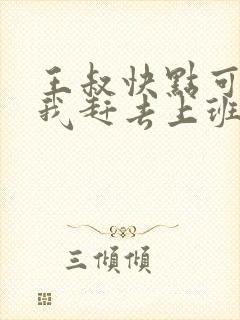 王叔快點可
我赶去上班
三傾傾